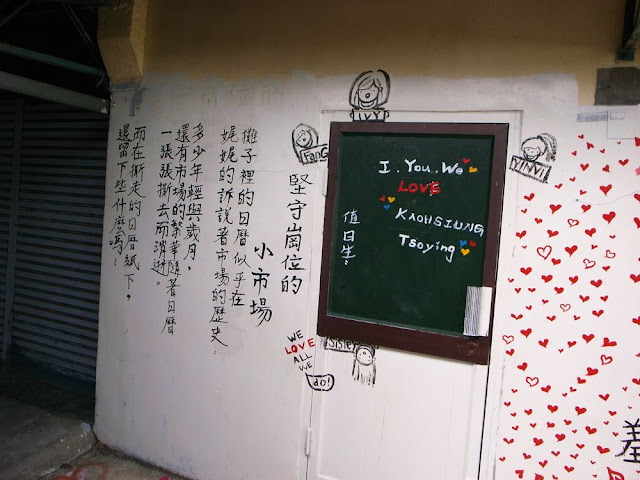 IVY
FanG
YINVI
I. You. We
LOVE
KAOHSIUNG
Tsoying
值日生:
堅守崗位的
小市場
攤子裡的日曆似乎在
娓娓的訴說著市場的歷史.
多少年輕與歲月,
還有市場的繁華隨著日曆
一張張撕去而消逝。
而在撕走的日曆紙下,
還留下些什麼嗎…
WE
LOVE
ALL
WE
do!